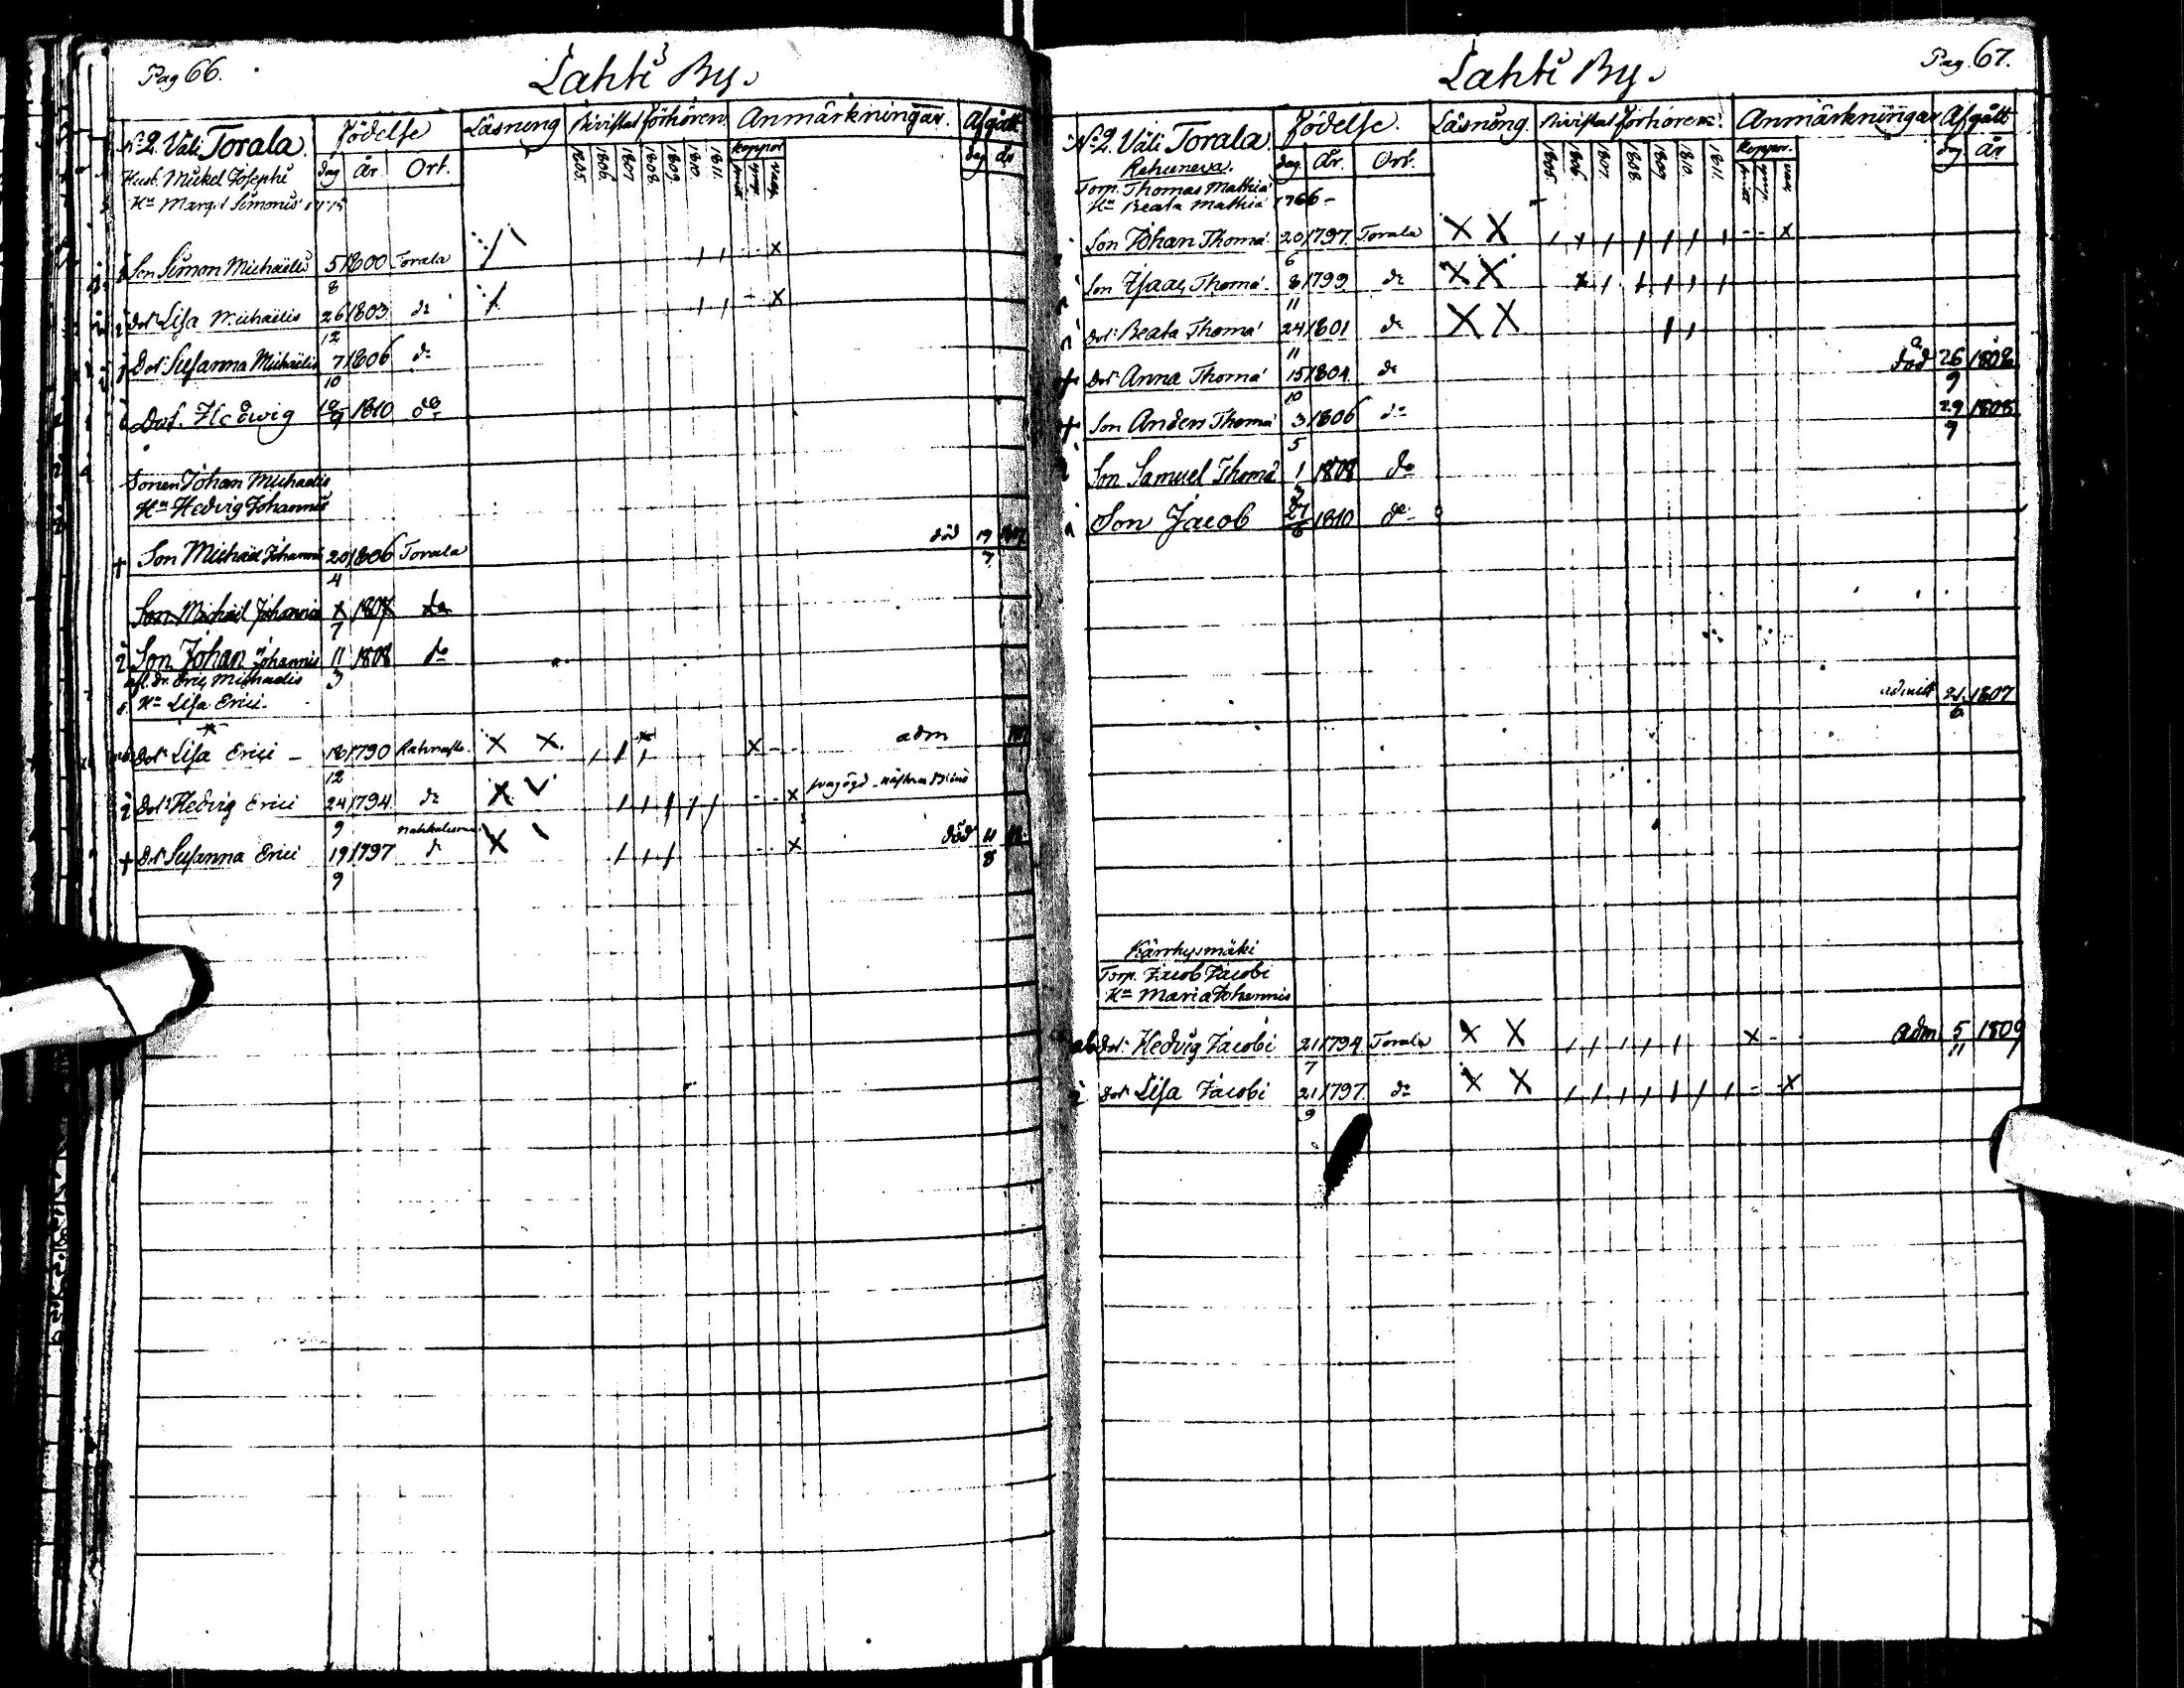 Pag 66.
Lahti By.
No 2. Väli Torala. Födelse Läsning Bivistat förhören. Anmärkningar. Afgått
dag År Ort. 1805. 1806. 1807 1808. 1809. 1810. 1811. koppor dag år
Husb. Mickel Josephi
Hu Marg.t Simonis
Son Simon Michaëlis 5/8 1800 Torala
Dotr Lisa Michaëlis 26/12 1803 do
Dotr Susanna Michaëlis 7/10 1806 do
Dot. Hedwig 1810 do
Sonen Johan Michaelis
Hu Hedvig Johannis
+ Son Michael Johannis 20/4 1806 Torala död 19/7
Son Michaël Johannis 7 1807 do
i Son Johan Johannis 11/3 1808 do
afl. dr. Eric Michaelis
Hu Lisa Erici.
Dotr Lisa Erici 18/12 1790 X X. X adm
i Dotr Hedvig Erici 24/9 1794 do X X
+ Dotr Susanna Erici 19/9 1797 do X X död 11/8
Pag. 67.
Lahti By.
No 2. Väli Torala. Födelse. Läsning. Bivistat förhören. Anmärkningar Afgått
dag År. Ort. 1805. 1806. 1807. 1808. 1809. 1810. 1811. koppor. dag år
Rahuneva.
Torp. Thomas Mathiæ
Hu Beata Mathiæ 1766
Son Johan Thomæ 20/6 1797. Torala X X X
Son Isaac Thomæ 8/11 1799 do X X
Dotr Beata Thomæ 24/11 1801 do X X
+ Dotr Anna Thomæ 15/10 1804 do död 26/9 1808
+ Son Anders Thomæ 3/5 1806 do 29/9 1808
Son Samuel Thomæ 1 1808 do
Son Jacob 27/6 1810 do
admitt 21/6 1807
Kärrkysmäki
Torp. Jacob Jacobi
Hu Maria Johannis
Dotr Hedvig Jacobi 21/7 1794 Torala X X X adm. 5/11 1809
i Dotr Lisa Jacobi 21/9 1797 do X X X